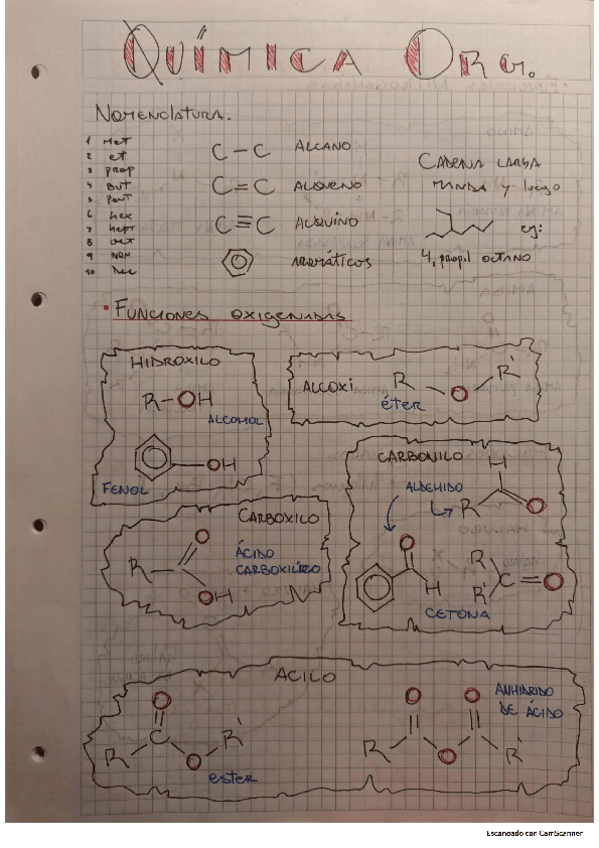 QUÍMICA ORG.
NOMENCLATURA.
1 MET
2 et
3 prop
4 BUT
5 pent
6 hex
7 hept
8 oct
9 NON
10 Dec
C – C ALCANO
C = C ALQUENO
C ≡ C ALQUINO
AROMÁTICOS
CADENA LARGA
MANDA y luego
eg:
4, propil octano
• FUNCIONES OXIGENADAS
HIDROXILO
R – OH
ALCOHOL
OH
FENOL
ALCOXI
R O R'
éter
CARBONILO
ALDEHIDO
H
R O
O
H
R
R' C = O
CETONA
CARBOXILO
O
R
OH
ÁCIDO
CARBOXÍLICO
ACILO
O
R C O R'
ester
O O
R O R'
ANHIDRIDO
DE ÁCIDO
Escaneado con CamScanner